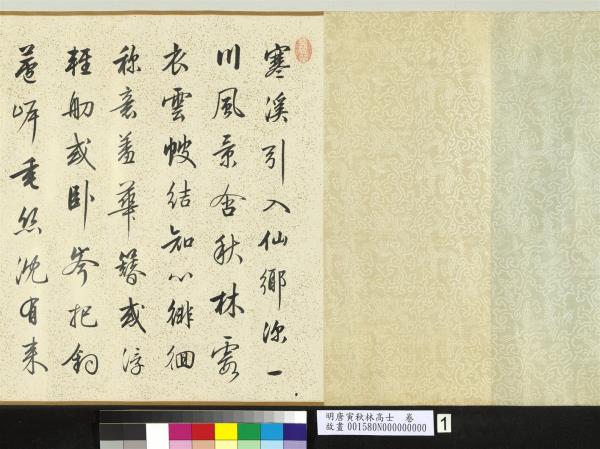 寒溪引入仙鄉深一
川風景含秋林霧
衣雲幔結知心徘徊
称意羞華簪或浮
輕舠或卧岑把釣
蘆岸垂絲沈有来
明唐寅秋林高士 卷
故畫001580N000000000
1